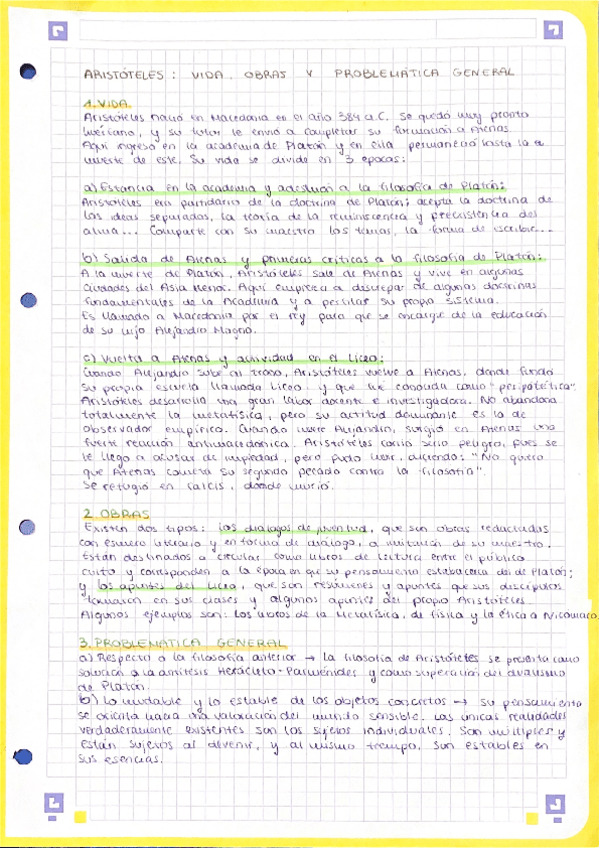 ARISTÓTELES: VIDA, OBRAS Y PROBLEMÁTICA GENERAL
1. VIDA
Aristóteles nació en Macedonia en el año 384 a.C. Se quedó muy pronto
huérfano, y su tutor le envió a completar su formación a Atenas.
Aquí ingresó en la academia de Platón y en ella permaneció hasta la
muerte de este. Su vida se divide en 3 épocas:
a) Estancia en la academia y adhesión a la filosofía de Platón:
Aristóteles era partidario de la doctrina de Platón; acepta la doctrina de
las ideas separadas, la teoría de la reminiscencia y preexistencia del
alma... Comparte con su maestro los temas, la forma de escribir...
b) Salida de Atenas y primeras críticas a la filosofía de Platón:
A la muerte de Platón, Aristóteles sale de Atenas y vive en algunas
ciudades del Asia Menor. Aquí empieza a discrepar de algunas doctrinas
fundamentales de la Academia y a perfilar su propio sistema.
Es llamado a Macedonia por el rey para que se encargue de la educación
de su hijo Alejandro Magno.
c) Vuelta a Atenas y actividad en el Liceo:
Cuando Alejandro sube al trono, Aristóteles vuelve a Atenas, donde funda
su propia escuela llamada Liceo, y que fue conocida como "peripatética".
Aristóteles desarrolla una gran labor docente e investigadora. No abandona
totalmente la metafísica, pero su actitud dominante es la de
observador empírico. Cuando muere Alejandro, surgió en Atenas una
fuerte reacción antimacedónica. Aristóteles corrió serio peligro, pues se
le llegó a acusar de impiedad, pero pudo huir, diciendo: "No quiero
que Atenas cometa su segundo pecado contra la filosofía".
Se refugió en Calcis, donde murió.
2. OBRAS
Existen dos tipos: los diálogos de juventud, que son obras redactadas
con esmero literario y en forma de diálogo, a imitación de su maestro.
Están destinados a circular como libros de lectura entre el público
culto y corresponden a la época en que su pensamiento estaba cerca del de Platón;
y los apuntes del Liceo, que son resúmenes y apuntes que sus discípulos
tomaron en sus clases y algunos apuntes del propio Aristóteles.
Algunos ejemplos son: Los libros de la Metafísica, de física y la ética a Nicómaco.
3. PROBLEMÁTICA GENERAL
a) Respecto a la filosofía anterior → la filosofía de Aristóteles se presenta como
solución a la antítesis Heráclito-Parménides y como superación del dualismo
de Platón.
b) Lo mudable y lo estable de los objetos concretos → su pensamiento
se orienta hacia una valoración del mundo sensible. Las únicas realidades
verdaderamente existentes son los sujetos individuales. Son múltiples y
están sujetos al devenir, y al mismo tiempo, son estables en
sus esencias.